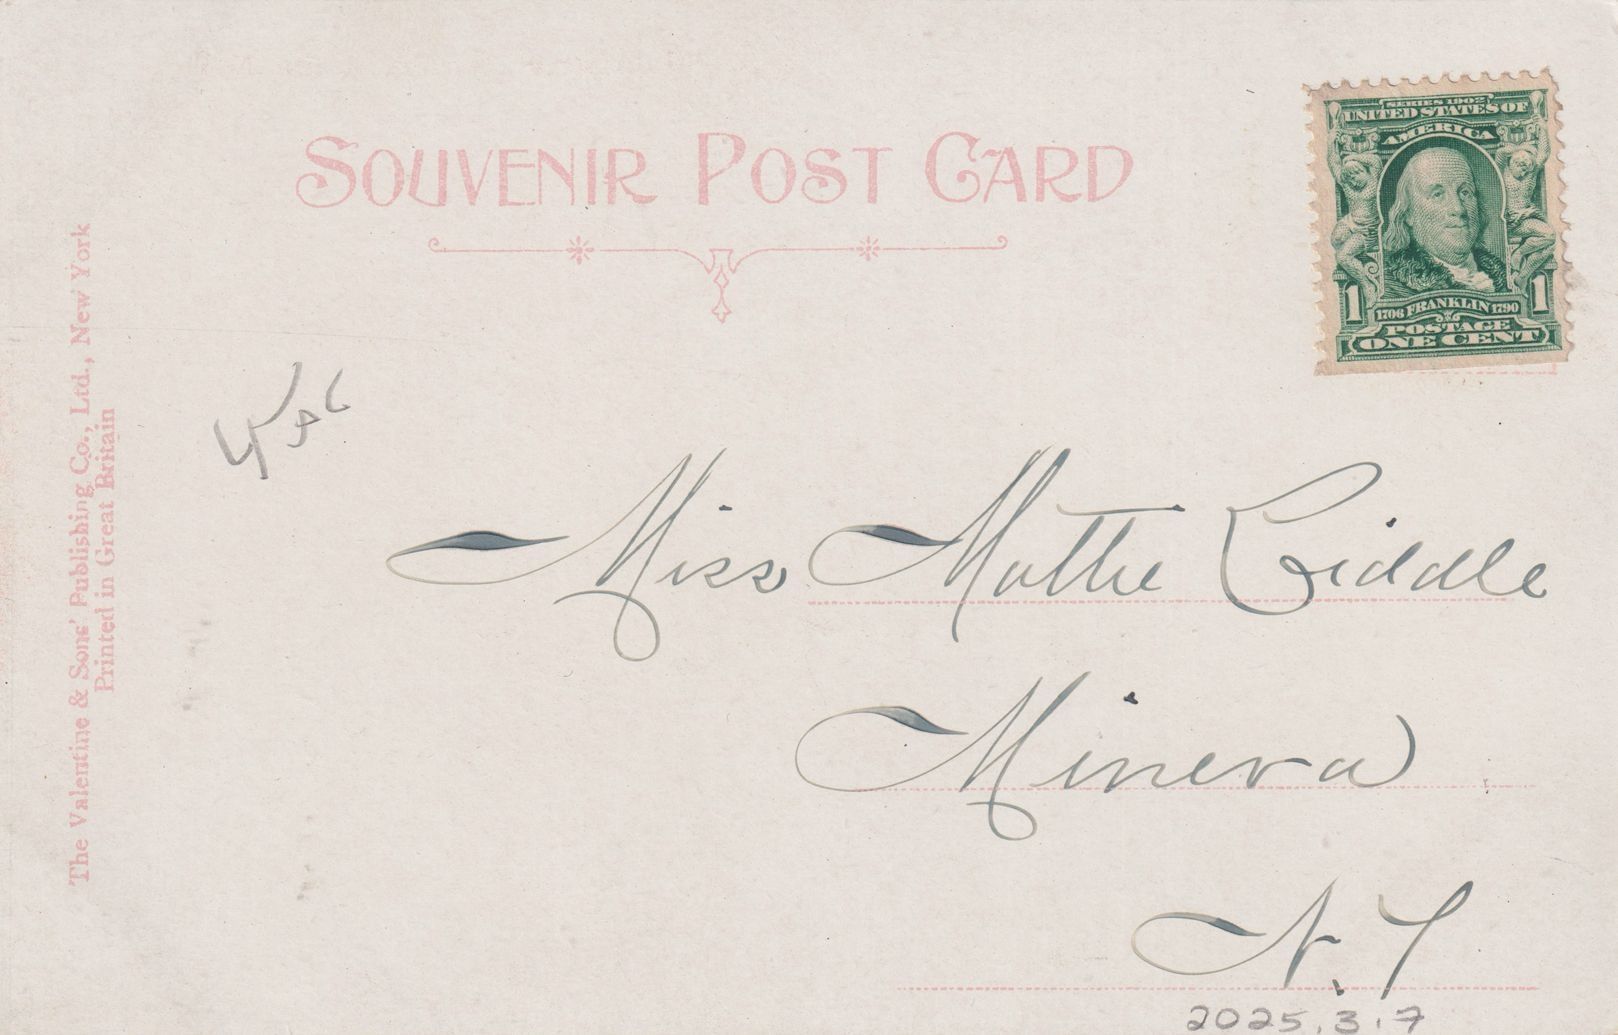 SOUVENIR POST CARD
SERIES 1902
UNITED STATES OF
AMERICA
1 1706 FRANKLIN 1790 1
POSTAGE
ONE CENT
The Valentine & Sons' Publishing Co., Ltd., New York
Printed in Great Britain
Miss Mattie
Minerva
N.Y
2025.3.7